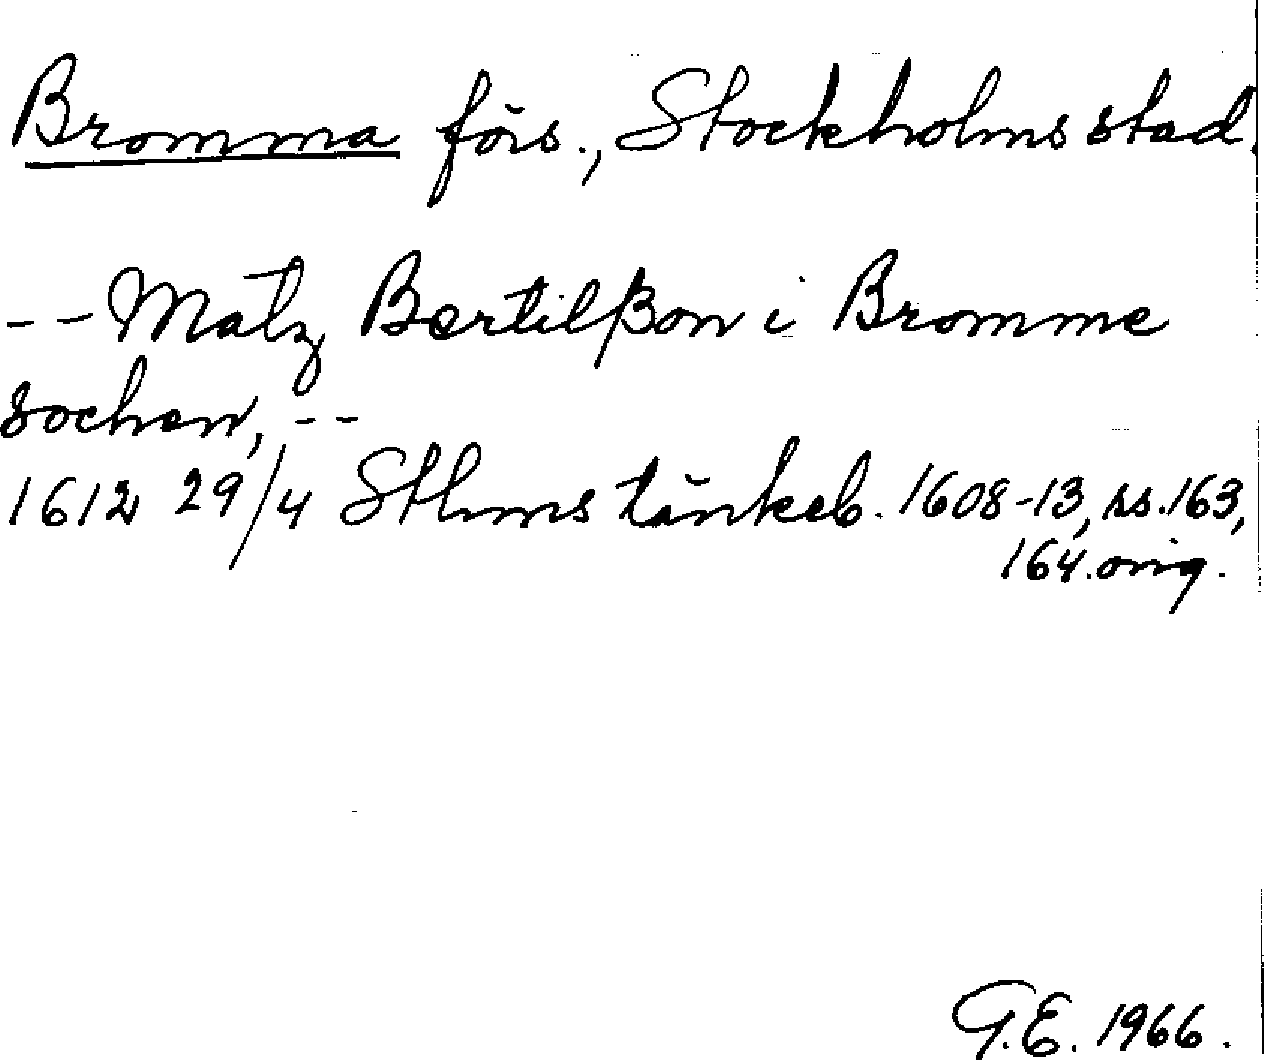 Bromma förs., Stockholms stad.
-- Matz Bertilßon i Bromme
sochen, --
1612 29/4 Sthms tänkeb. 1608-13, ss. 163,
164. orig.
G.E. 1966.